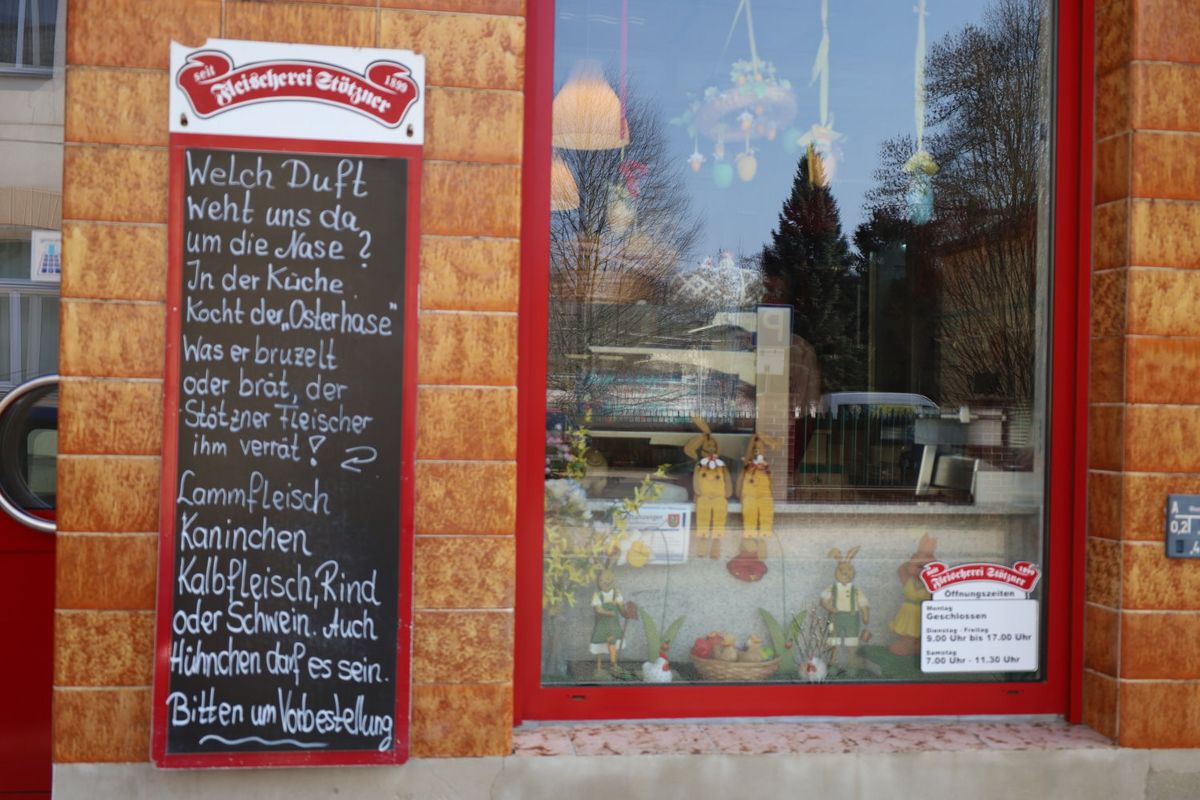 seit Fleischerei Stötzner 1899
Welch Duft
weht uns da
um die Nase?
In der Küche
kocht der „Osterhase"
Was er bruzelt
oder brät, der
Stötzner Fleischer
ihm verrät!
Lammfleisch
Kaninchen
Kalbfleisch, Rind
oder Schwein. Auch
Hühnchen darf es sein.
Bitten um Vorbestellung
seit Fleischerei Stötzner 1899
Öffnungszeiten
Montag
Geschlossen
Dienstag - Freitag
9.00 Uhr bis 17.00 Uhr
Samstag
7.00 Uhr - 11.30 Uhr
A
0,2